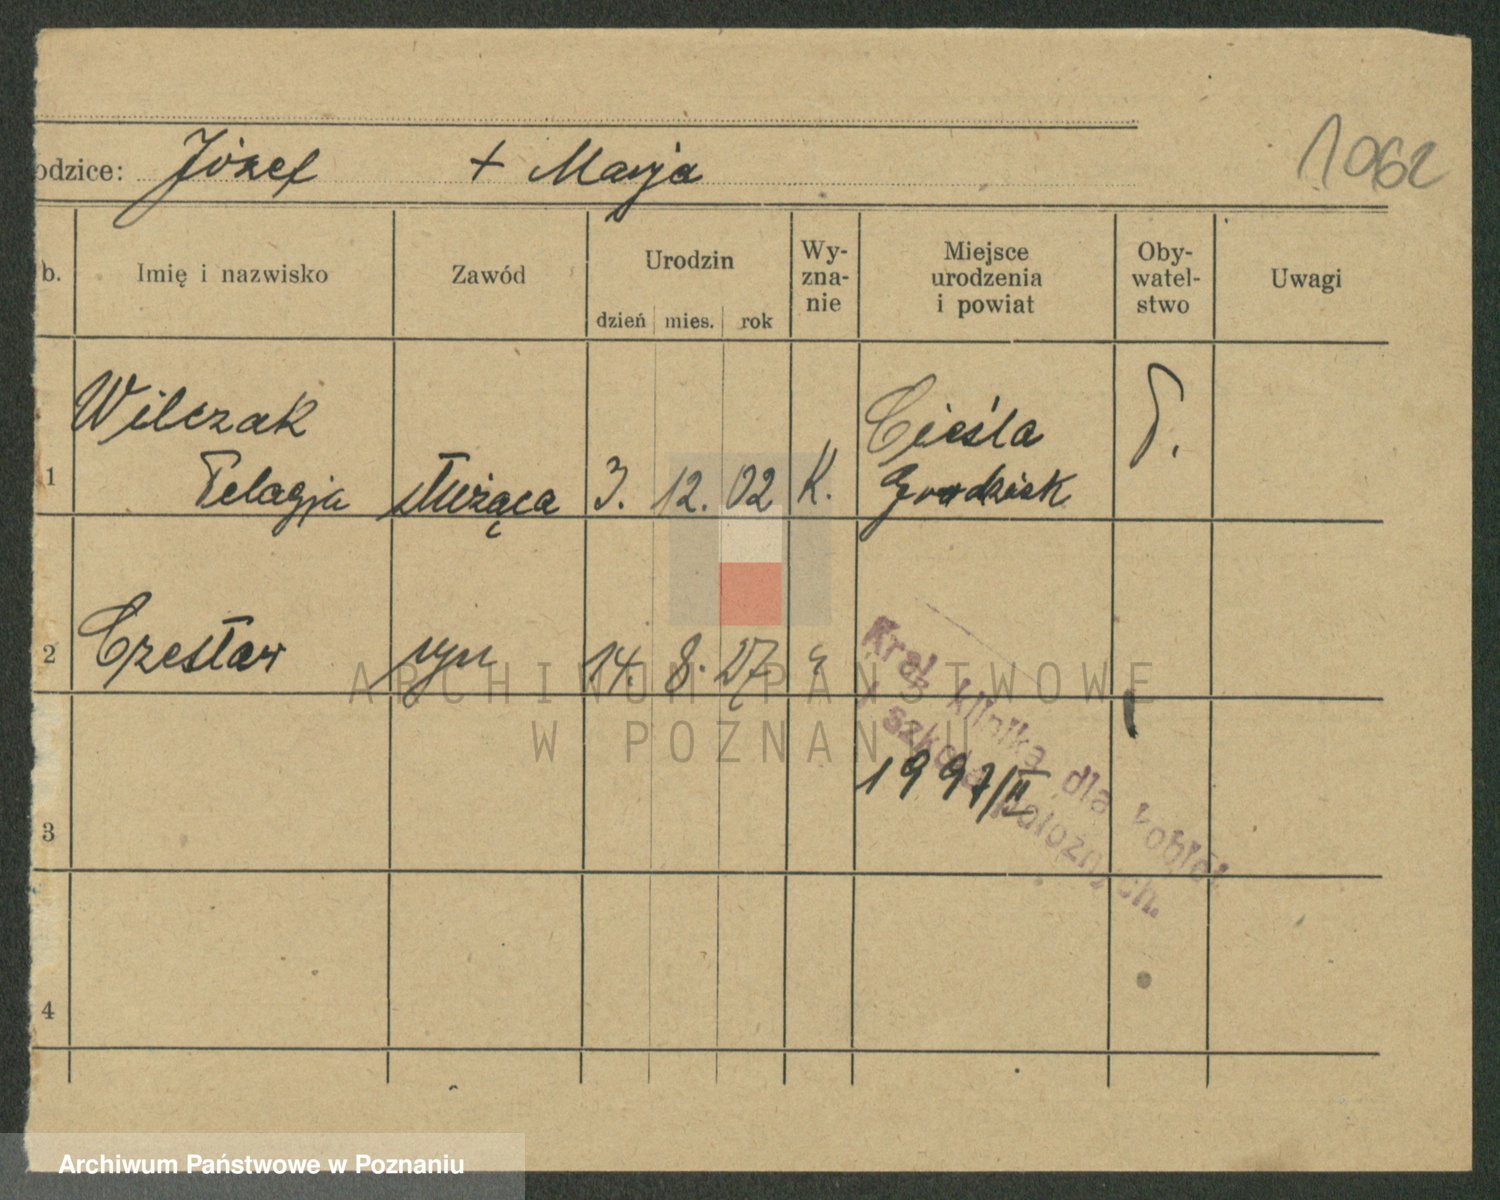 1062
odzice: Józef + Marja
b. Imię i nazwisko Zawód Urodzin dzień mies. rok Wy-zna-nie Miejsce urodzenia i powiat Oby-watel-stwo Uwagi
Wilczak Cieśla P.
1 Pelagja służąca 3. 12. 02 K. Grodzisk
2 Czesław syn 14. 8. 27
Kraj. klinika dla kobiet
i szkoła położnych.
1997/II
3
4
ARCHIWUM PAŃSTWOWE
W POZNANIU
Archiwum Państwowe w Poznaniu